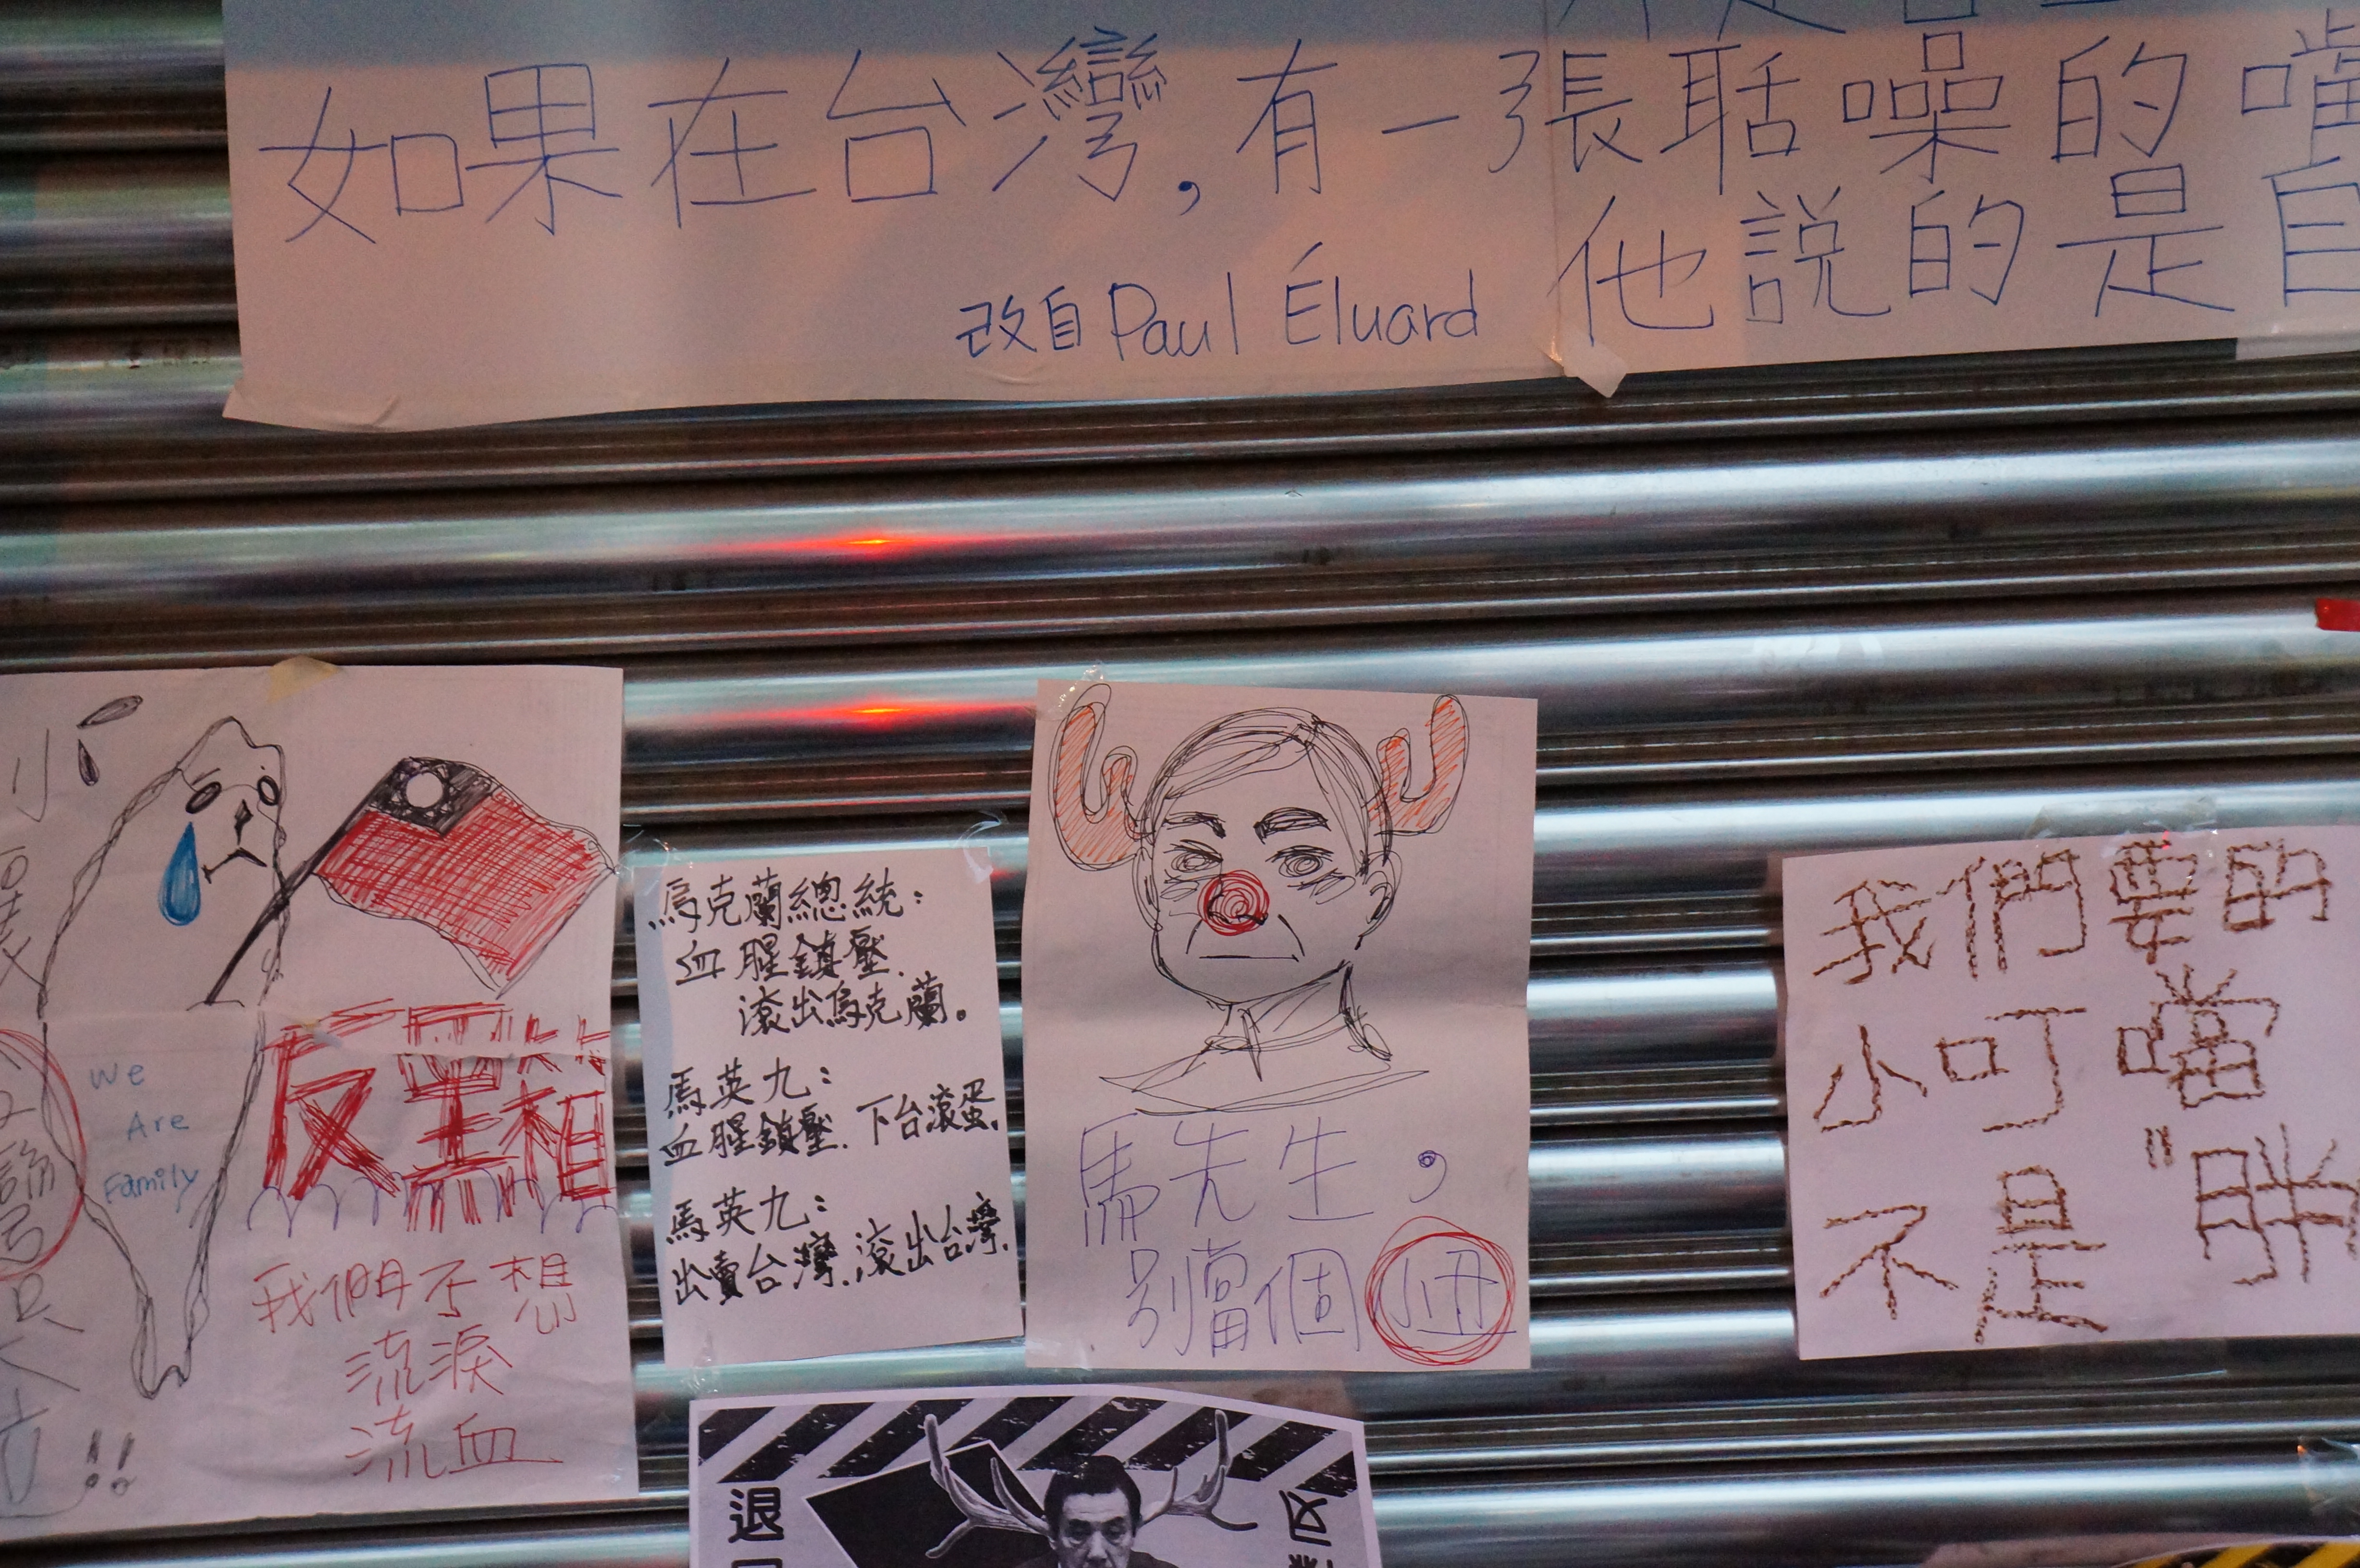 如果在台灣,有一張聒噪的嘴
他說的是自
改自Paul Éluard
We
Are
Family
反黑箱
我們不想
流淚
流血
!!
烏克蘭總統:
血腥鎮壓.
滾出烏克蘭。
馬英九:
血腥鎮壓.下台滾蛋.
馬英九:
出賣台灣.滾出台灣.
馬先生,
別當個小丑
我們要的
小叮噹
不是"胖
退
反